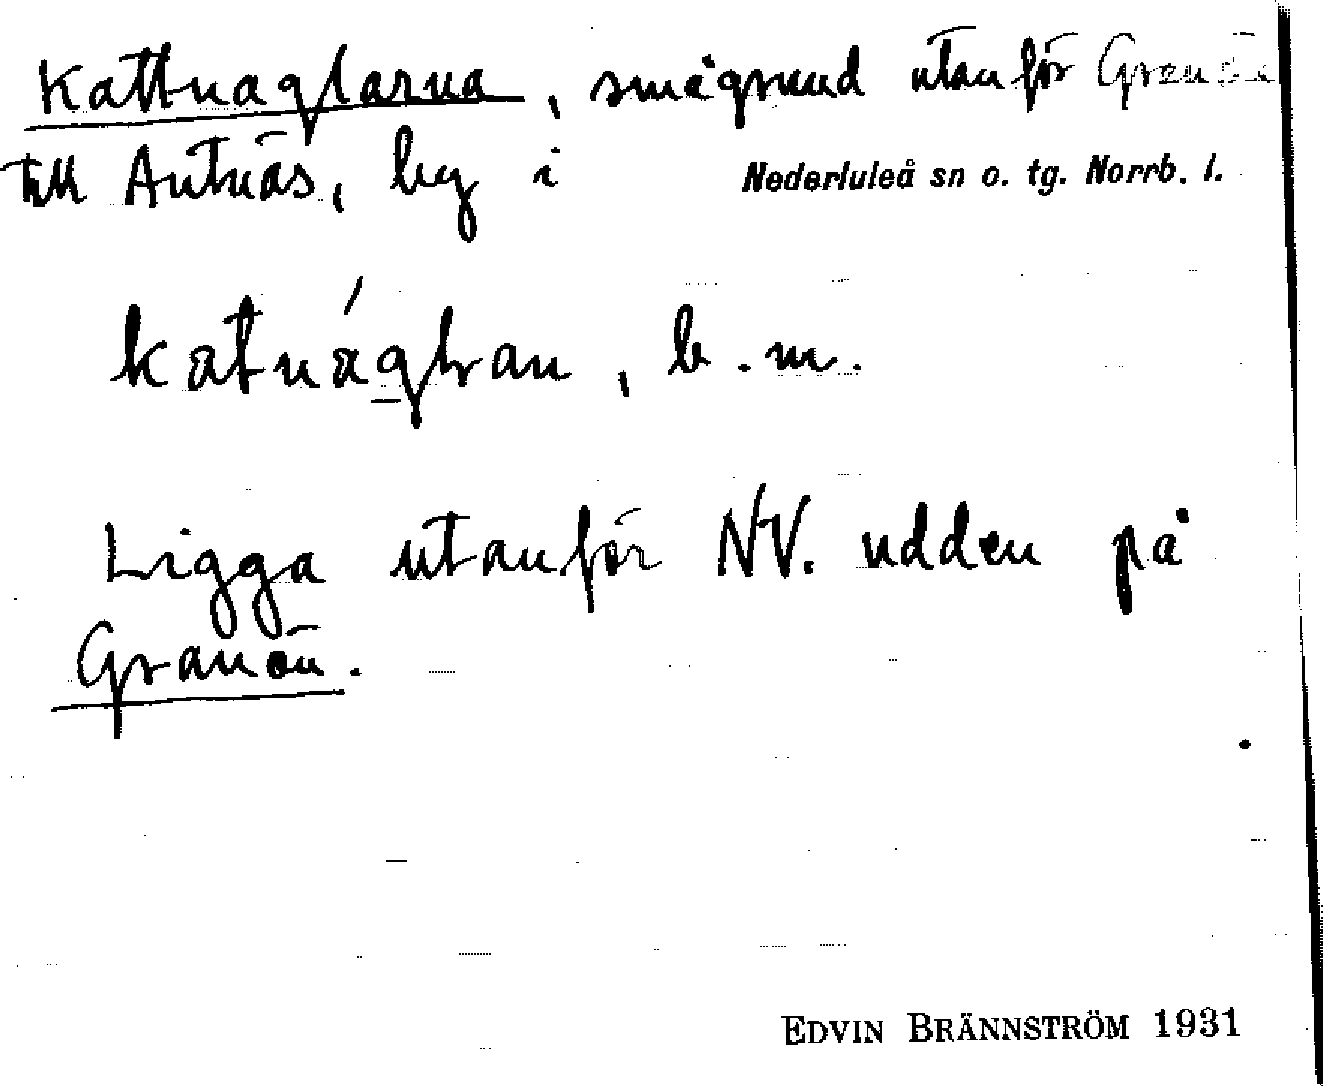 Kattnaglarna, smågrund utanför Granön
till Antnäs, by i Nederluleå sn o. tg. Norrb. l.
katnáglran, b.m.
Ligga utanför NV. udden på
Granön.
EDVIN BRÄNNSTRÖM 1931